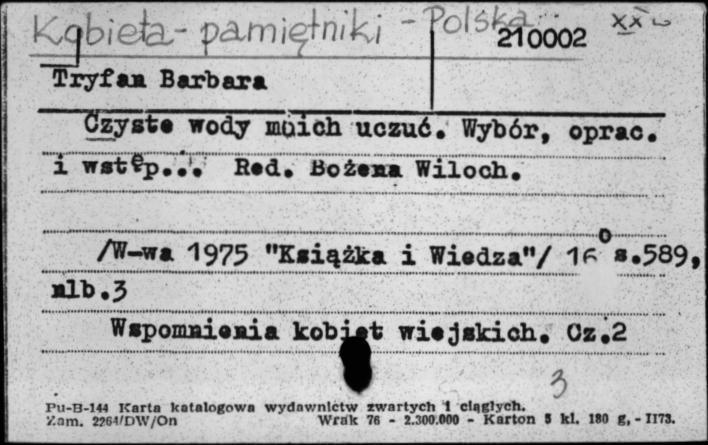 Kobieta - pamiętniki - Polska XX w
210002
Tryfan Barbara
Czyste wody moich uczuć. Wybór, oprac.
i wstęp... Red. Bożena Wiloch.
/W-wa 1975 "Książka i Wiedza"/ 16° s.589,
nlb.3
Wspomnienia kobiet wiejskich. Cz.2
3
Pu-B-144 Karta katalogowa wydawnictw zwartych i ciągłych.
Zam. 2264/DW/On Wrak 76 - 2.300.000 - Karton 5 kl. 180 g, - II73.